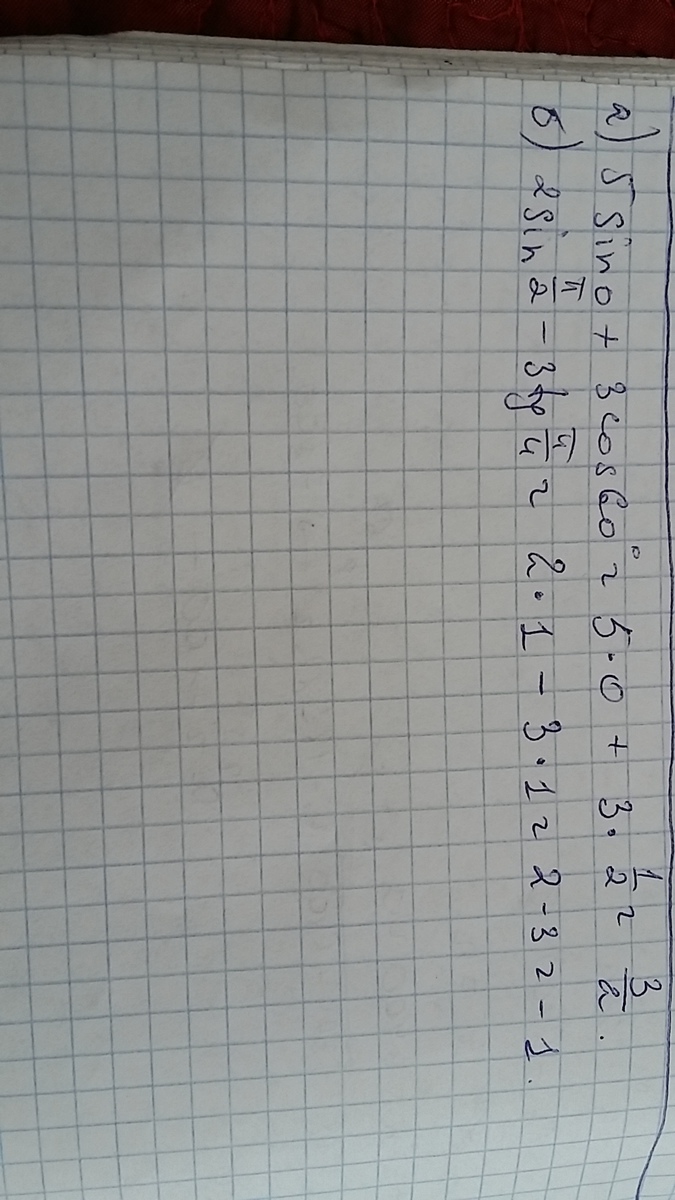 а) 5 sin 0 + 3 cos 60° = 5 · 0 + 3 · 1/2 = 3/2.
б) 2 sin π/2 - 3 tg π/4 = 2 · 1 - 3 · 1 = 2 - 3 = - 1.